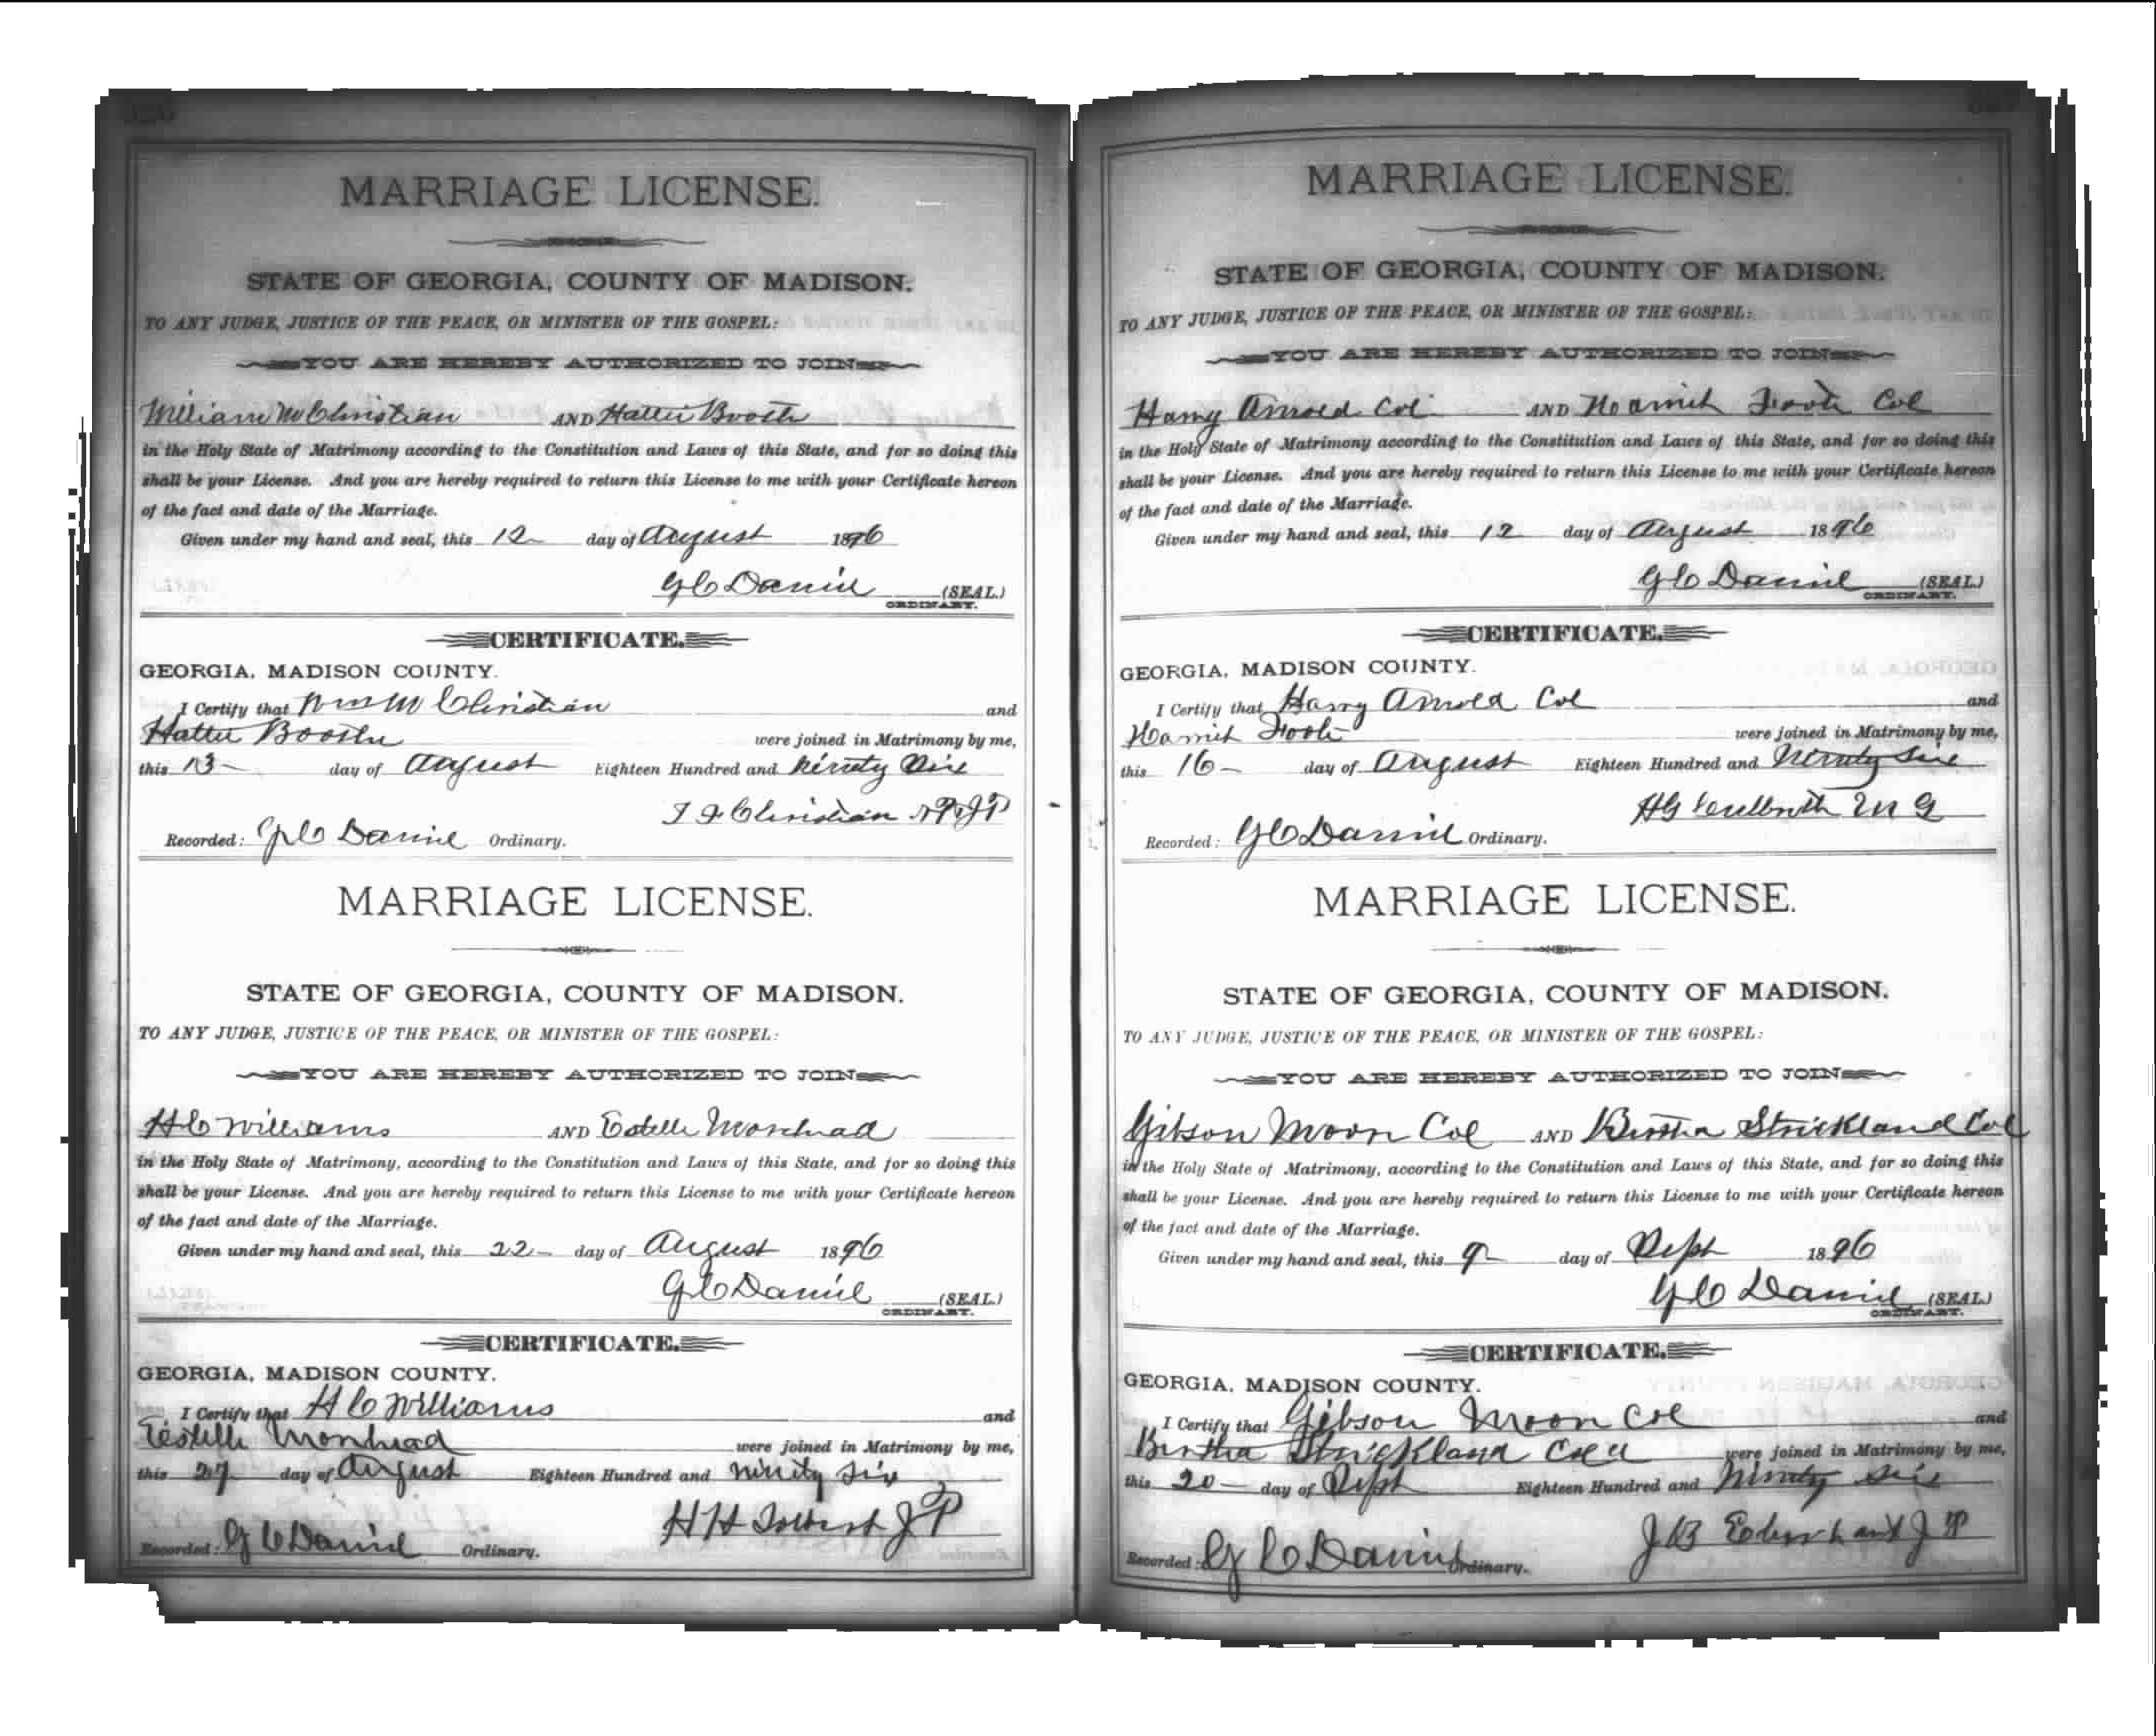 MARRIAGE LICENSE.
STATE OF GEORGIA, COUNTY OF MADISON.
TO ANY JUDGE, JUSTICE OF THE PEACE, OR MINISTER OF THE GOSPEL:
YOU ARE HEREBY AUTHORIZED TO JOIN
William M Christian AND Hattie Booth
in the Holy State of Matrimony according to the Constitution and Laws of this State, and for so doing this
shall be your License. And you are hereby required to return this License to me with your Certificate hereon
of the fact and date of the Marriage.
Given under my hand and seal, this 12 day of August 1896
G C Daniel (SEAL.)
ORDINARY.
CERTIFICATE.
GEORGIA, MADISON COUNTY.
I Certify that Wm M Christian and
Hattie Booth were joined in Matrimony by me,
this 13 day of August Eighteen Hundred and Ninety Six
Christian
Recorded: G C Daniel Ordinary.
MARRIAGE LICENSE.
STATE OF GEORGIA, COUNTY OF MADISON.
TO ANY JUDGE, JUSTICE OF THE PEACE, OR MINISTER OF THE GOSPEL:
YOU ARE HEREBY AUTHORIZED TO JOIN
H C Williams AND Estelle Moorhead
in the Holy State of Matrimony, according to the Constitution and Laws of this State, and for so doing this
shall be your License. And you are hereby required to return this License to me with your Certificate hereon
of the fact and date of the Marriage.
Given under my hand and seal, this 22 day of August 1896
G C Daniel (SEAL.)
ORDINARY.
CERTIFICATE.
GEORGIA, MADISON COUNTY.
I Certify that H C Williams and
Estelle Moorhead were joined in Matrimony by me,
this 27 day of August Eighteen Hundred and ninety six
H H Tolbert J P
Recorded: G C Daniel Ordinary.
MARRIAGE LICENSE.
STATE OF GEORGIA, COUNTY OF MADISON.
TO ANY JUDGE, JUSTICE OF THE PEACE, OR MINISTER OF THE GOSPEL:
YOU ARE HEREBY AUTHORIZED TO JOIN
Harry Arnold Col AND Col
in the Holy State of Matrimony according to the Constitution and Laws of this State, and for so doing this
shall be your License. And you are hereby required to return this License to me with your Certificate hereon
of the fact and date of the Marriage.
Given under my hand and seal, this 12 day of August 1896
G C Daniel (SEAL.)
ORDINARY.
CERTIFICATE.
GEORGIA, MADISON COUNTY.
I Certify that Harry Arnold Col and
were joined in Matrimony by me,
this 16 day of August Eighteen Hundred and Ninety Six
H G M G
Recorded: G C Daniel Ordinary.
MARRIAGE LICENSE.
STATE OF GEORGIA, COUNTY OF MADISON.
TO ANY JUDGE, JUSTICE OF THE PEACE, OR MINISTER OF THE GOSPEL:
YOU ARE HEREBY AUTHORIZED TO JOIN
Gibson Moon Col AND Bertha Strickland Col
in the Holy State of Matrimony, according to the Constitution and Laws of this State, and for so doing this
shall be your License. And you are hereby required to return this License to me with your Certificate hereon
of the fact and date of the Marriage.
Given under my hand and seal, this 9 day of Sept 1896
G C Daniel (SEAL.)
ORDINARY.
CERTIFICATE.
GEORGIA, MADISON COUNTY.
I Certify that Gibson Moon Col and
Bertha Strickland were joined in Matrimony by me,
this 20 day of Sept Eighteen Hundred and Ninety Six
J B Eberhart J P
Recorded: G C Daniel Ordinary.